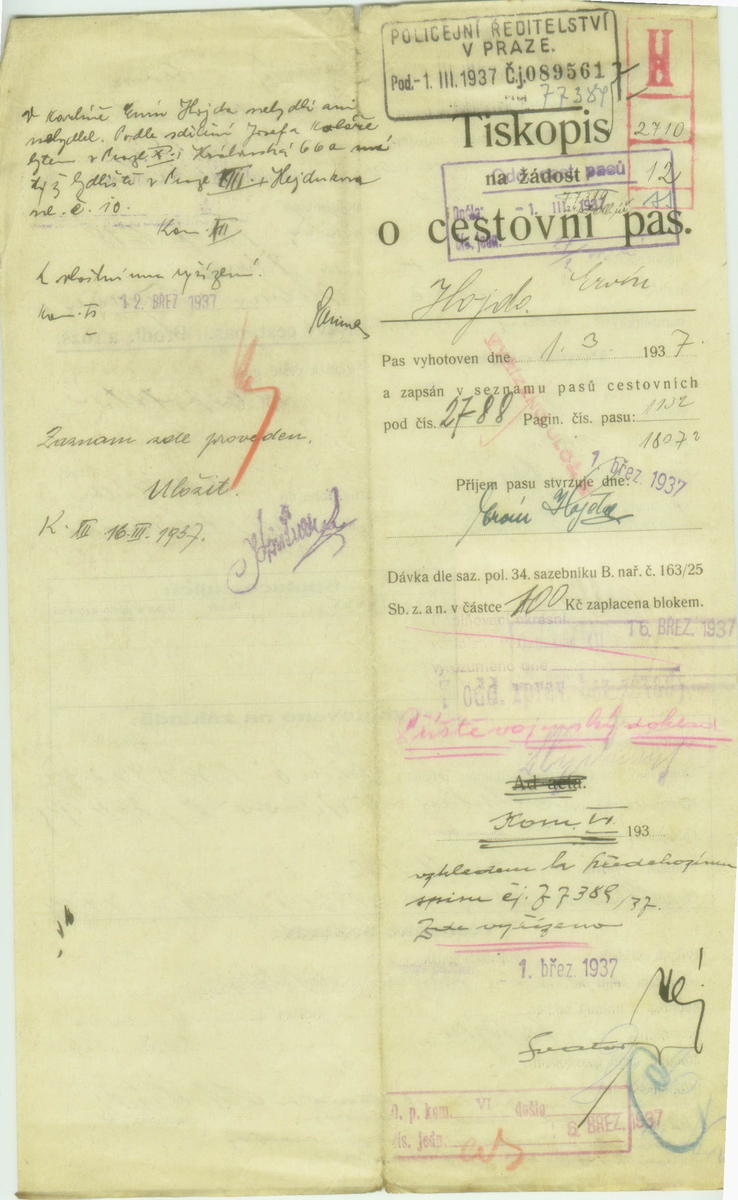 V Karlíně Ervín Hojda nebydlí ani
nebydlel. Podle sdělení Josefa Koláře
bytem v Praze X. Královská 66a má
býti bydliště v Praze VIII. Hejdukova
ul. č. 10.
Kom. III
K vlastnímu vyřízení.
Kom. VI
12. BŘEZ 1937
Záznam zde proveden.
Uložit.
K. III 16. III. 1937.
POLICEJNÍ ŘEDITELSTVÍ
V PRAZE.
Pod. -1. III. 1937 Č.j. 089561
77389
H
2710
12
Tiskopis
na žádost
pasů
Došlo: -1. III. 1937
Čís. jedn.
o cestovní pas.
Hojda Ervín
Pas vyhotoven dne 1. 3. 1937.
a zapsán v seznamu pasů cestovních
pod čís. 2788 Pagin. čís. pasu:
1807
1. břez. 1937
Příjem pasu stvrzuje dne:
Ervín Hojda
Dávka dle saz. pol. 34. sazebníku B. nař. č. 163/25
Sb. z. a n. v částce 100 Kč zaplacena blokem.
16. BŘEZ. 1937
Příště vojenský doklad
Ad acta.
Kom. VI. 193
vzhledem k předchozímu
spisu čj. 77389/37.
Zde vyřízeno
1. břez. 1937
O. p. kom. VI došlo
6. BŘEZ. 1937
čís. jedn.